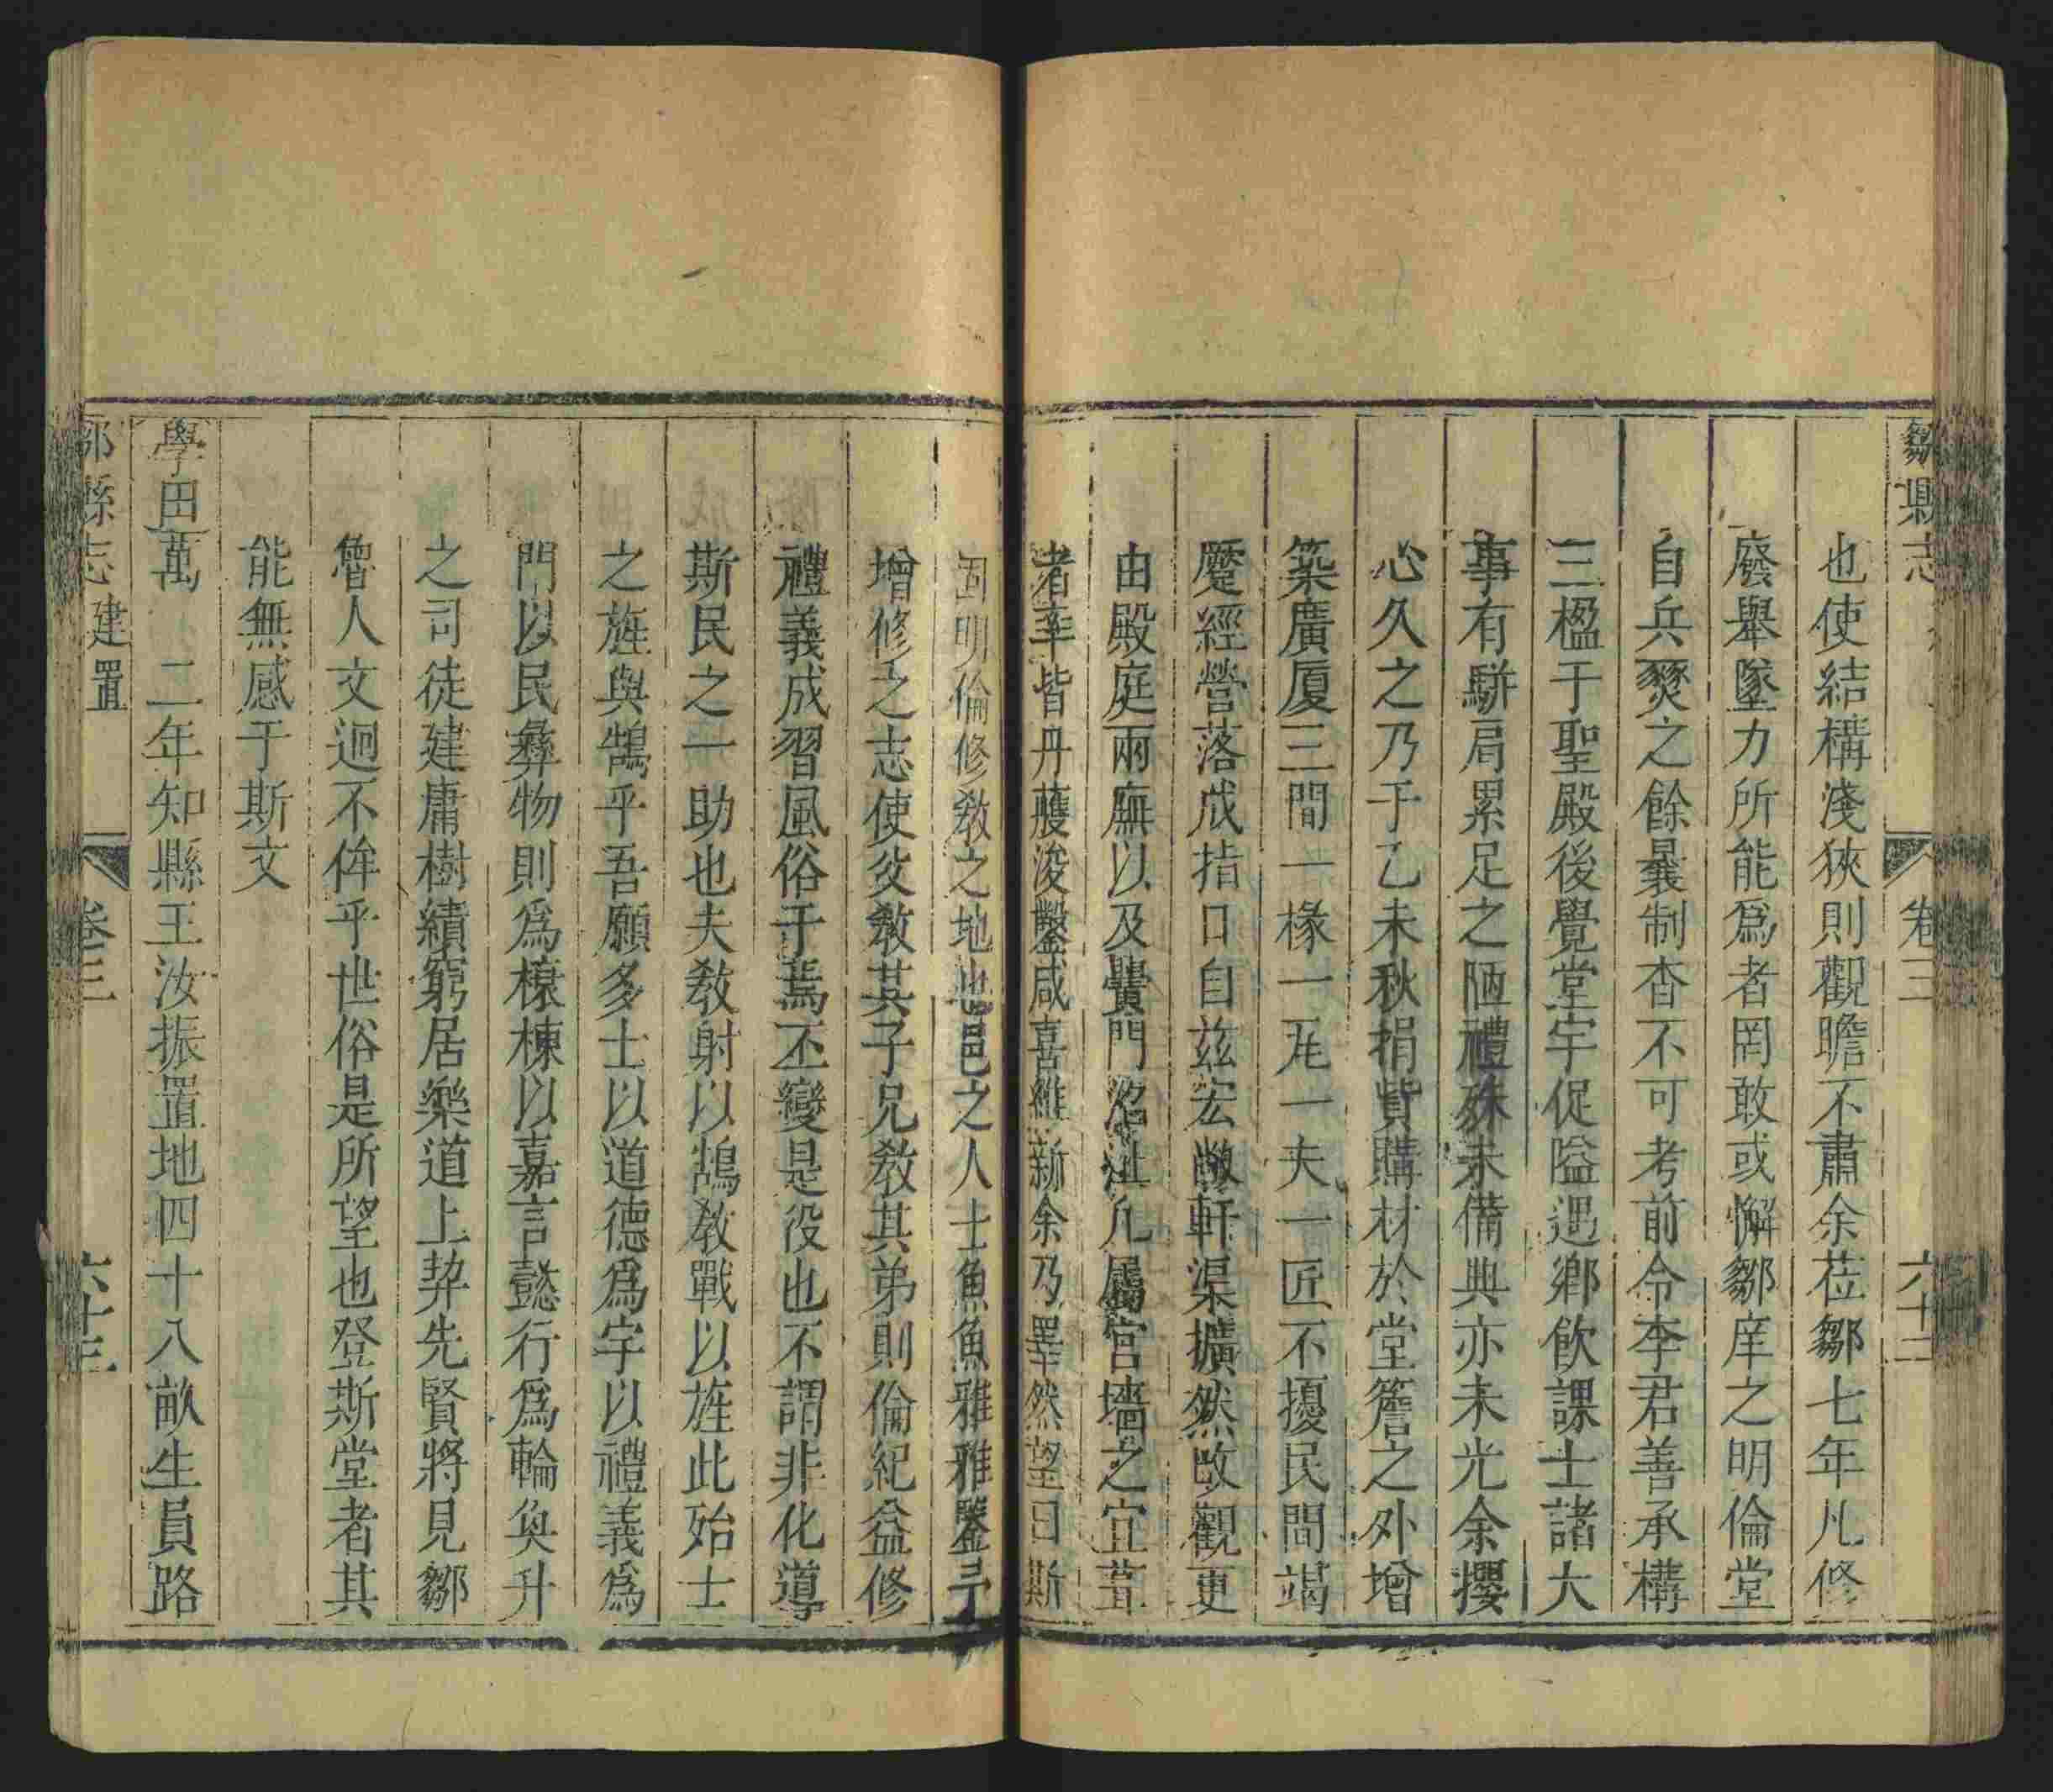 鄒縣志 卷三 六十二
也使結構淺狹則觀瞻不肅余莅鄒七年凡修
廢舉墜力所能爲者罔敢或懈鄒庠之明倫堂
自兵燹之餘曩制杳不可考前令李君善承構
三楹于聖殿後覺堂宇促隘遇鄉飲課士諸大
事有駢局累足之陋禮殊未備典亦未光余攖
心久之乃于乙未秋捐貲購材於堂簷之外增
築廣厦三間一椽一瓦一夫一匠不擾民間竭
蹷經營落成指日自兹宏敞軒渠擴然改觀更
由殿庭兩廡以及黌門沼沚凡屬宮墻之宜葺
者率皆丹雘浚鑿咸喜維新余乃睪然望曰斯
固明倫修教之地也邑之人士魚魚雅雅鑒予
增修之志使父教其子兄教其弟則倫紀益修
禮義成習風俗于焉丕變是役也不謂非化導
斯民之一助也夫教射以鵠教戰以旌此殆士
之旌與鵠乎吾願多士以道德爲宇以禮義爲
門以民彝物則爲榱棟以嘉言懿行爲輪奐升
之司徒建庸樹績窮居樂道上契先賢將見鄒
魯人文迥不侔乎世俗是所望也登斯堂者其
能無感于斯文
學田萬 二年知縣王汝振置地四十八畝生員路
鄒縣志 建置 卷三 六十三